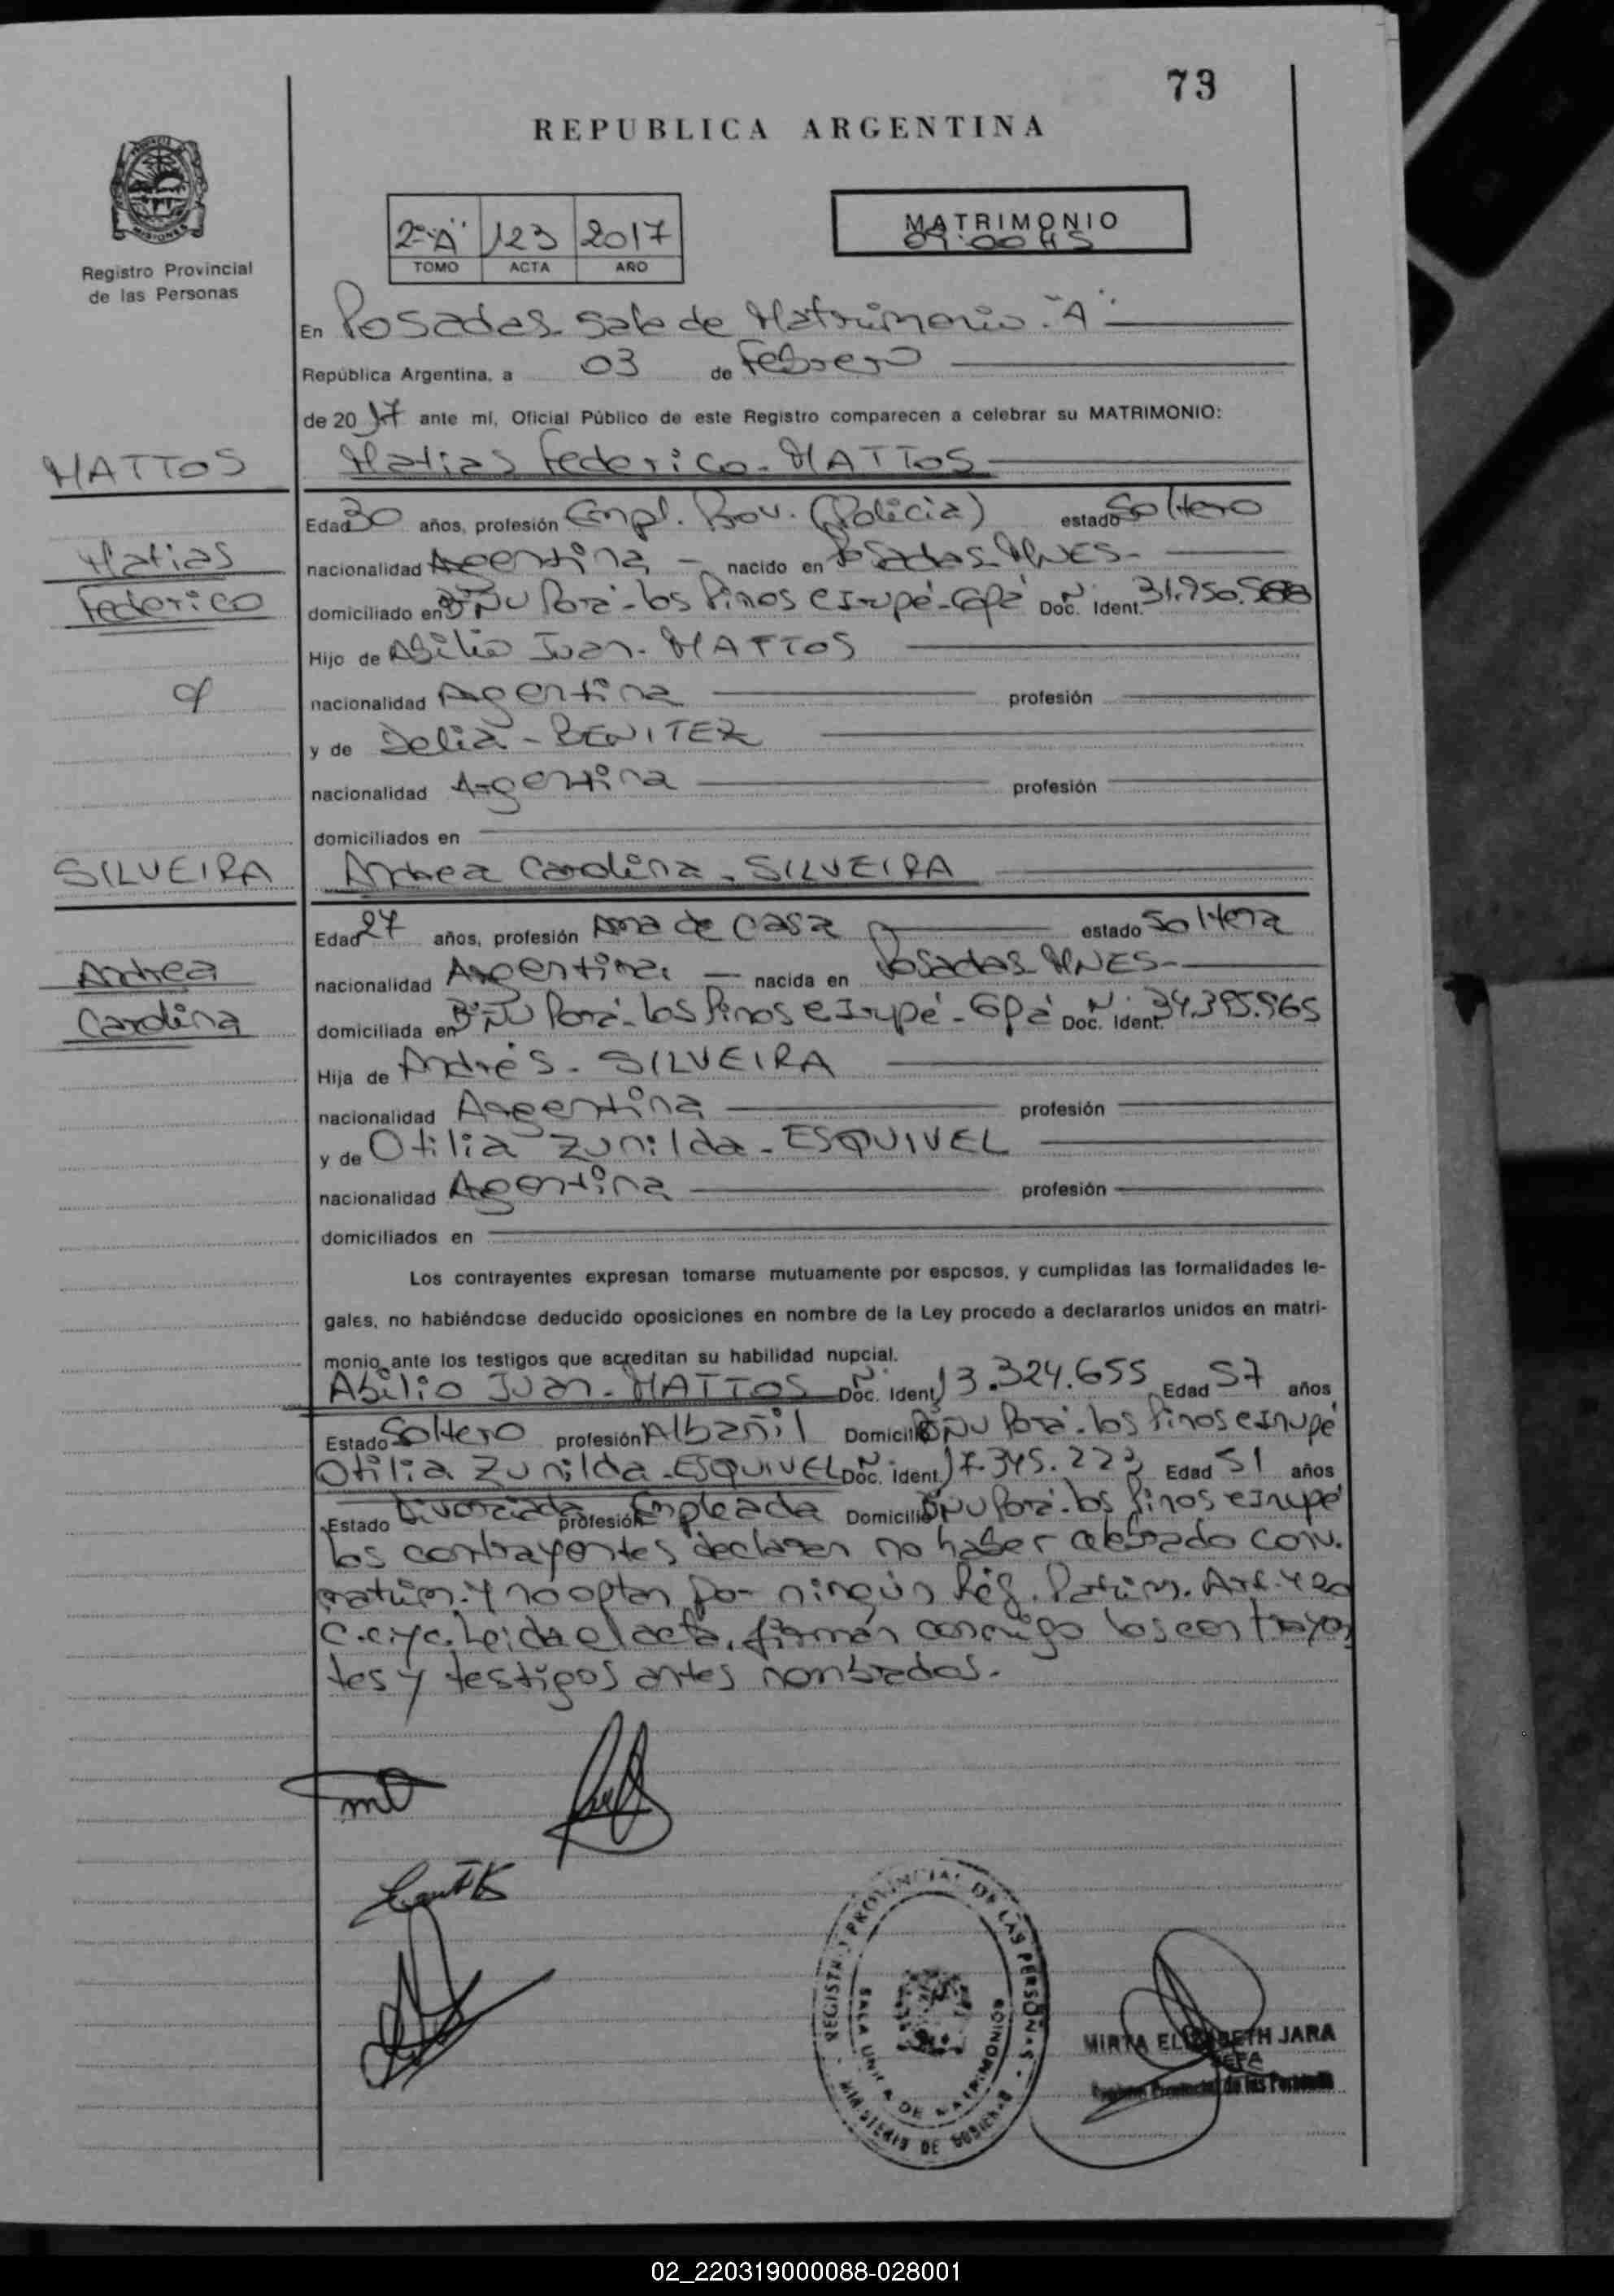 73
REPUBLICA ARGENTINA
2º "A" 123 2017
TOMO ACTA AÑO
MATRIMONIO
09:00 HS
MISIONES
Registro Provincial
de las Personas
En Posadas - Sala de Matrimonio - "A"
República Argentina, a 03 de Febrero
de 2017 ante mí, Oficial Público de este Registro comparecen a celebrar su MATRIMONIO:
MATTOS
Matias Federico - MATTOS
Edad 30 años, profesión Empl. Prov. (Policia) estado Soltero
Matias
nacionalidad Argentina - nacido en Posadas MNES -
Federico
domiciliado en Bº Ñu Porá - los Pinos e Irupé - Gpá Doc. Ident. Nº 31.750.
Hijo de Abilio Juan - MATTOS
nacionalidad Argentina profesión
y de Delia - BENITEZ
nacionalidad Argentina profesión
domiciliados en
SILVEIRA
Andrea Carolina - SILVEIRA
Edad 27 años, profesión Ama de Casa estado Soltera
Andrea
nacionalidad Argentina - nacida en Posadas MNES -
Carolina
domiciliada en Bº Ñu Porá - los Pinos e Irupé - Gpá Doc. Ident. Nº 34.395.965
Hija de Andrés - SILVEIRA
nacionalidad Argentina profesión
y de Otilia Zunilda - ESQUIVEL
nacionalidad Argentina profesión
domiciliados en
Los contrayentes expresan tomarse mutuamente por esposos, y cumplidas las formalidades le-
gales, no habiéndose deducido oposiciones en nombre de la Ley procedo a declararlos unidos en matri-
monio ante los testigos que acreditan su habilidad nupcial.
Abilio Juan - MATTOS Doc. Ident. Nº 13.324.655 Edad 57 años
Estado Soltero profesión Albañil Domicilio Bº Ñu Porá - los Pinos e Irupé
Otilia Zunilda - ESQUIVEL Doc. Ident. Nº 17.345.223 Edad 51 años
Estado Divorciada profesión Empleada Domicilio Bº Ñu Porá - los Pinos e Irupé
los contrayentes declaran no haber celebrado conv.
matrim. y no optan por ningún Rég. Patrim. Art. 420
C.C. y C. Leida el acta, firman conmigo los contrayen
tes y testigos antes nombrados.
REGISTRO PROVINCIAL DE LAS PERSONAS
SALA UNICA DE MATRIMONIOS
MINISTERIO DE GOBIERNO
MIRTA ELIZABETH JARA
JEFA
Registro Provincial de las Personas
02_220319000088-028001